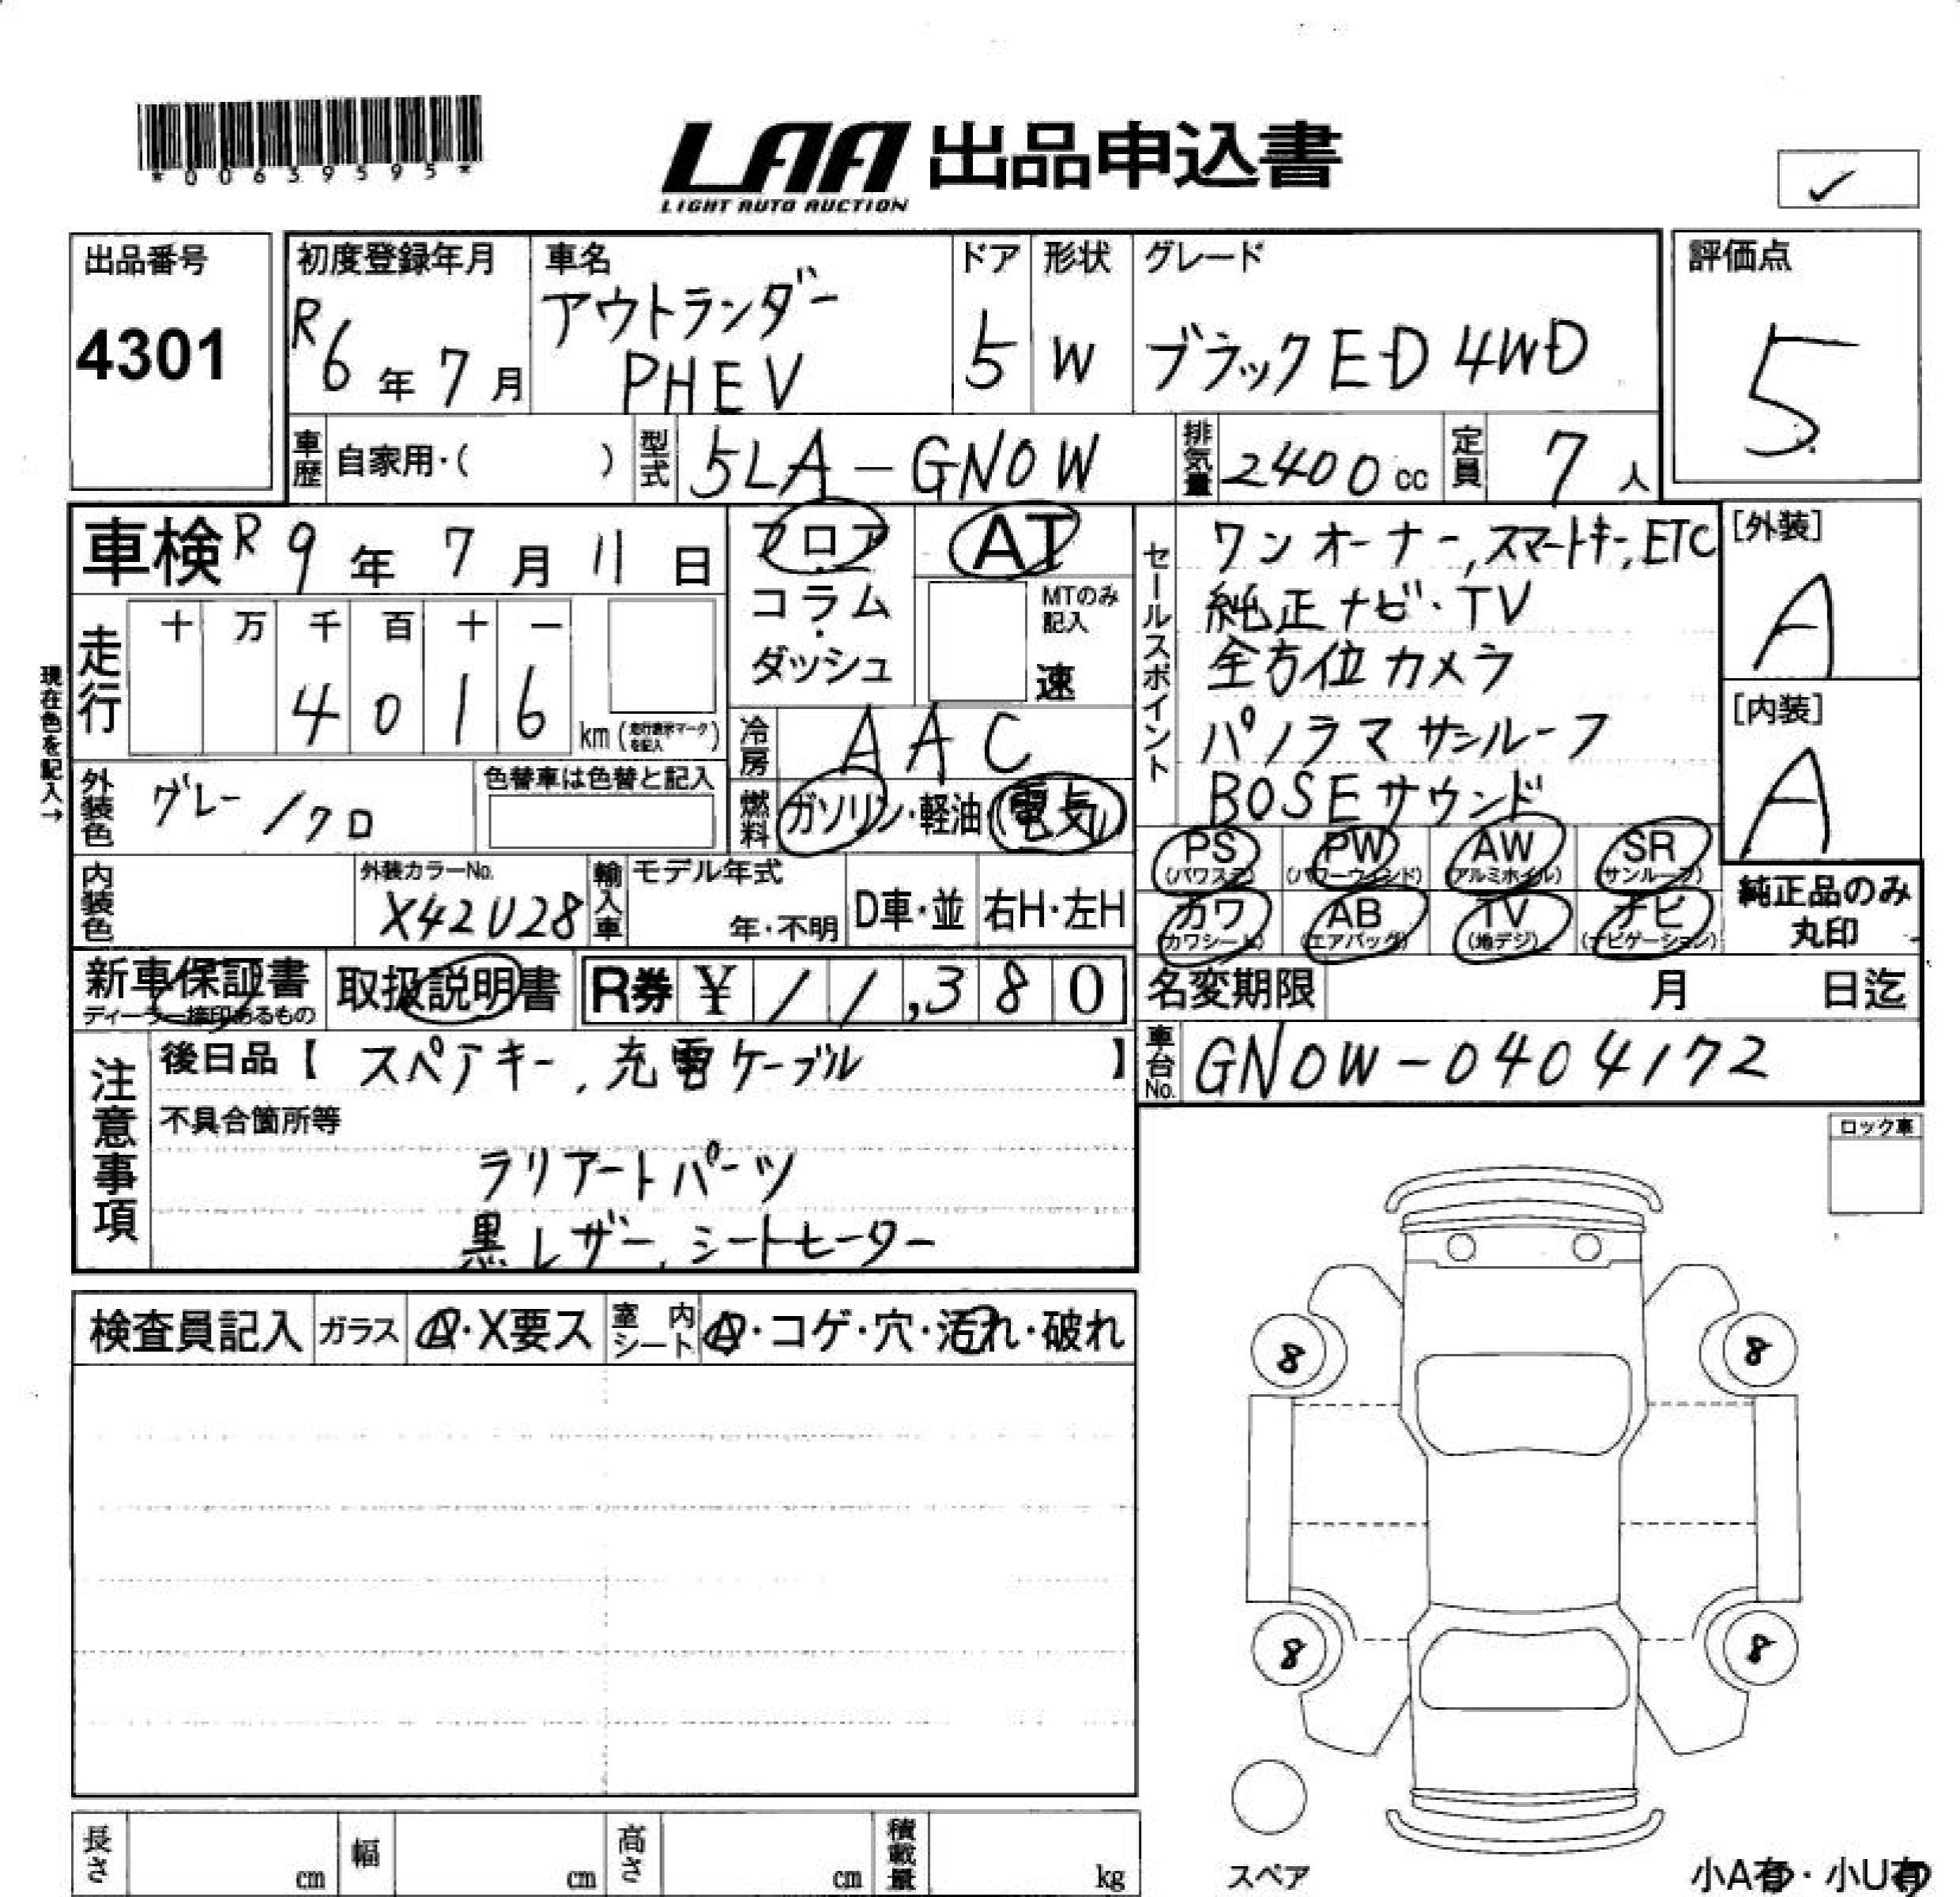 *00639595*
LAA 出品申込書
LIGHT AUTO AUCTION
✓
出品番号
4301
初度登録年月
R6年7月
車名
アウトランダー
PHEV
ドア
5
形状
W
グレード
ブラックE-D 4WD
評価点
5
車歴 自家用・( )
型式 5LA-GN0W
排気量 2400cc
定員 7人
車検 R9年7月11日
フロア・コラム・ダッシュ
AT
MTのみ記入
速
現在色を記入→
走行
十 万 千 百 十 一
4 0 1 6 km(走行表示マークを記入)
冷房 AAC
燃料 ガソリン・軽油・(電気)
外装色 グレー/クロ
色替車は色替と記入
内装色
外装カラーNo.
X42U28
輸入車
モデル年式
年・不明
D車・並
右H・左H
セールスポイント
ワンオーナー,スマートキー,ETC
純正ナビ・TV
全方位カメラ
パノラマサンルーフ
BOSEサウンド
[外装]
A
[内装]
A
PS (パワステ)
PW (パワーウィンド)
AW (アルミホイル)
SR (サンルーフ)
カワ (カワシート)
AB (エアバッグ)
TV (地デジ)
ナビ (ナビゲーション)
純正品のみ
丸印
新車保証書
ディーラー捺印あるもの
取扱説明書
R券 ¥ 11,380
名変期限 月 日迄
車台No. GN0W-0404172
注意事項
後日品【 スペアキー,充電ケーブル 】
不具合箇所等
ラリアートパーツ
黒レザー,シートヒーター
ロック車
検査員記入
ガラス
A・X要ス
室内シート
A・コゲ・穴・汚れ・破れ
8
8
8
8
スペア
長さ cm
幅 cm
高さ cm
積載量 kg
小A有・小U有